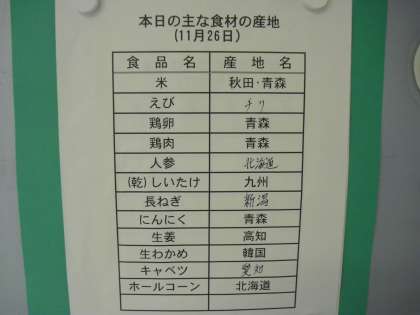 本日の主な食材の産地
(11月26日)
食品名 産地名
米 秋田・青森
えび チリ
鶏卵 青森
鶏肉 青森
人参 北海道
(乾)しいたけ 九州
長ねぎ 新潟
にんにく 青森
生姜 高知
生わかめ 韓国
キャベツ 愛知
ホールコーン 北海道